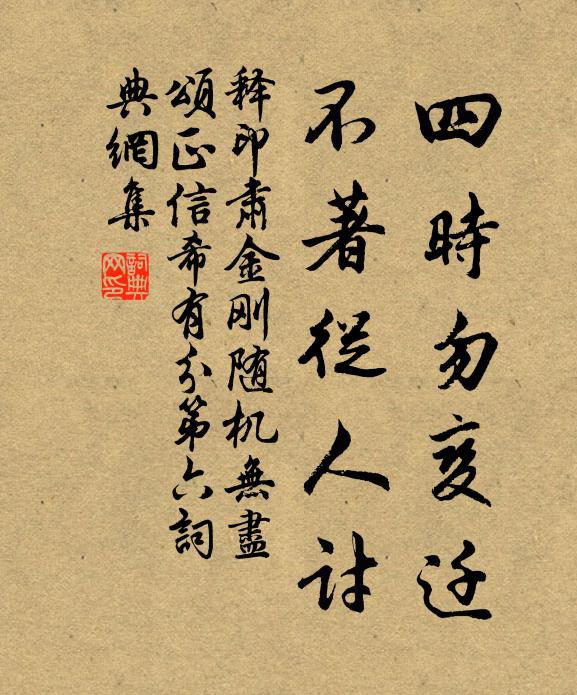 四時勿变迁
不著從人討
释印肃金刚随机無盡
頌正信希有分第六詞
典網集
詞典网印